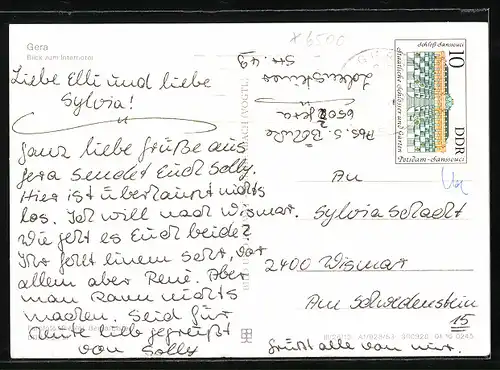 Gera
Blick zum Interhotel
Liebe Elli und liebe
Sylvia!
Ganz liebe Grüße aus
Gera sendet Euch Solly.
Hier ist überhaupt nichts
los. Ich will nach Wismar.
Wie geht es Euch beide?
Ihr fehlt einem sehr, vor
allem aber René. Aber
man kann nichts
machen. Seid für
heute lieb gegrüßt
von Solly
x 6500
Abs. S.
6502 Gera
Str. 49
10
DDR
Schloß Sanssouci
Staatliche Schlösser und Gärten
Potsdam-Sanssouci
An
Sylvia Schacht
2400 Wismar
Am Schwedenstein
15
Grüßt alle von mir.